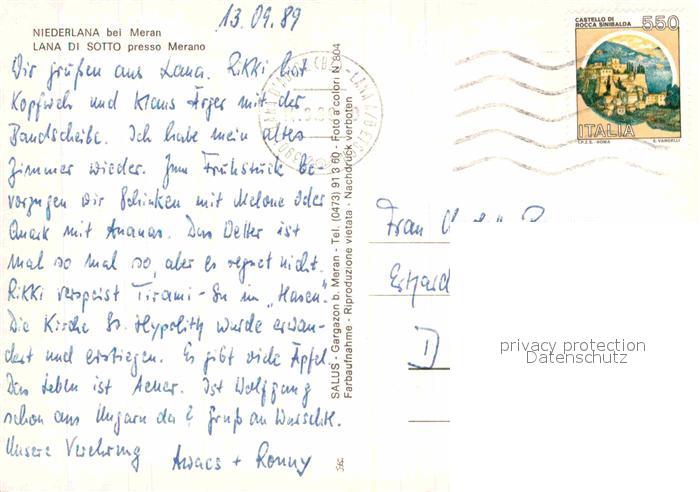 13.09.89
NIEDERLANA bei Meran
LANA DI SOTTO presso Merano
Wir grüßen aus Lana. Rikki hat
Kopfweh und Klaus Ärger mit der
Bandscheibe. Ich habe mein altes
Zimmer wieder. Zum Frühstück be-
vorzugen wir Schinken mit Melone oder
Quark mit Ananas. Das Wetter ist
mal so mal so, aber es regnet nicht.
Rikki verspeist Tirami-Su im „Hasen."
Die Kirche St. Hypolith wurde erwan-
dert und erstiegen. Es gibt viele Äpfel.
Das Leben ist teuer. Ist Wolfgang
schon aus Ungarn da? Gruß an
Unsere Verehrung
+ Ronny
SALUS - Gargazon b. Meran - Tel. (0473) 913 60 - Foto a colori N. 804
Farbaufnahme - Riproduzione vietata - Nachdruck verboten
CASTELLO DI
ROCCA SINIBALDA
550
ITALIA
I.P.Z.S. - ROMA
E. VANGELLI
Frau
D
privacy protection
Datenschutz